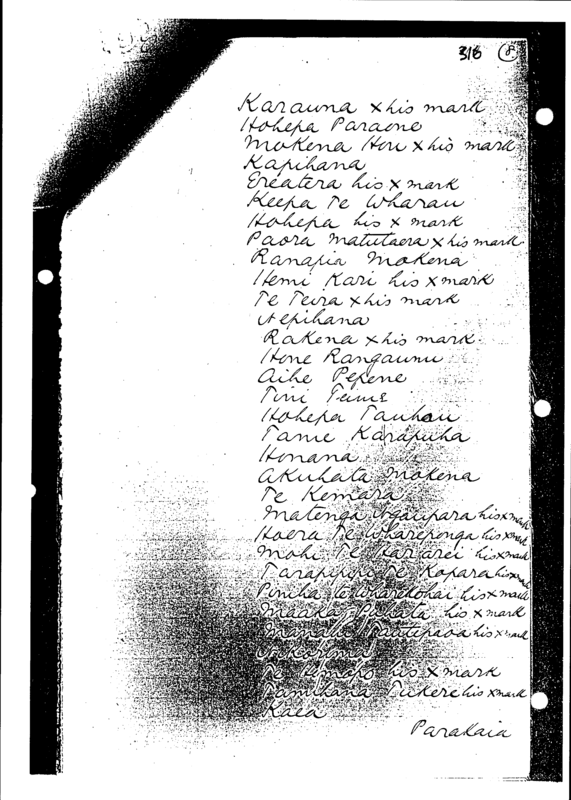 318 8
Karauna x his mark
Hohepa Paraone
Mokena Hou x his mark
Kapihana
Ereatera his x mark
Keepa Te Wharau
Hohepa his x mark
Paora Matutaera x his mark
Ranapia Mokena
Hemi Kari his x mark
Te Teira x his mark
Nepihana
Rakena x his mark
Hone Rangaunu
Aihe Pepene
Tini
Hohepa Tauhou
Tame Karapuha
Honana
Akuhata Mokena
Te Kemara
Matenga Ngaupara his x mark
Hoera Te Whareponga his x mark
Mohi Te Hararei his x mark
Tarapipipi Te Kopara his x mark
Piniha te Wharetohai his x mark
Maaka Pukata his x mark
his x mark
Te his x mark
Tamihana Tukere his x mark
Kaea
Parakaia